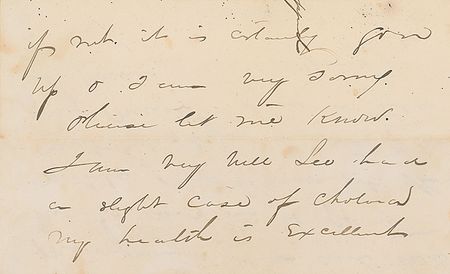 if not. it is certainly gon
up & I am very sorry.
Please let me know.
I am very well Leo had
a slight case of cholera
my health is excellent